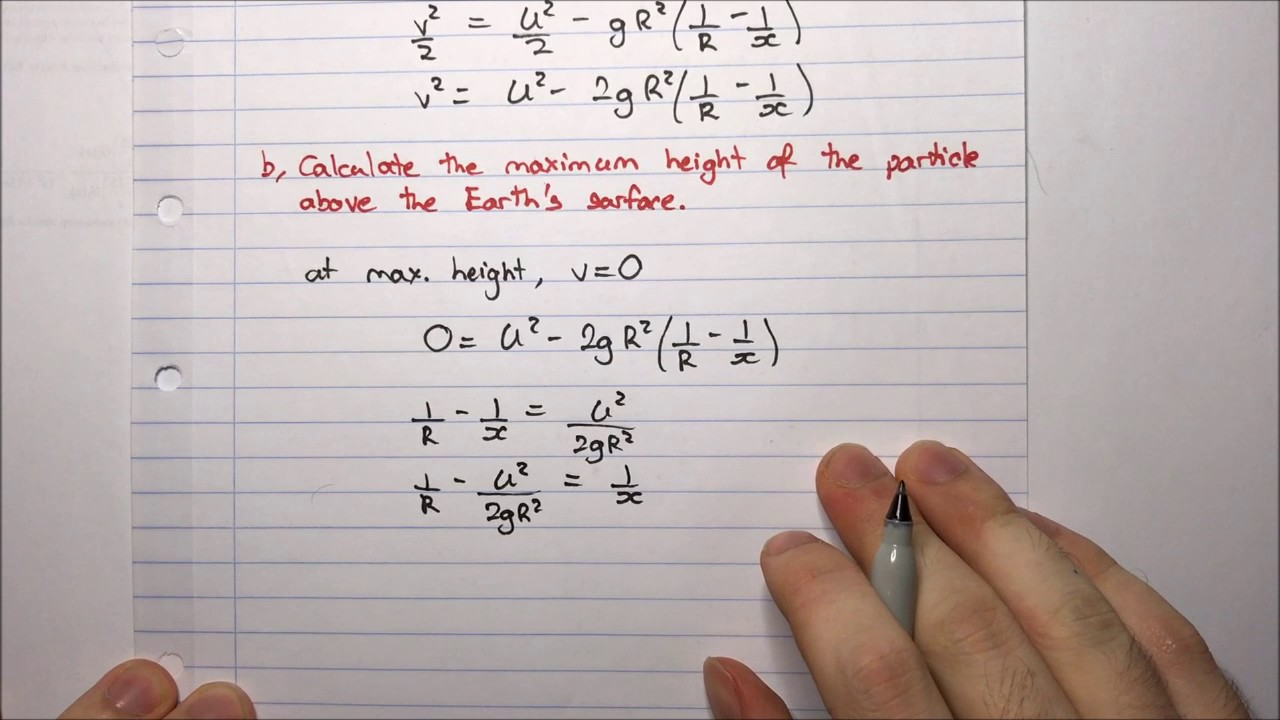 v²/2 = u²/2 - gR²(1/R - 1/x)
v² = u² - 2gR²(1/R - 1/x)
b, Calculate the maximum height of the particle
above the Earth's surface.
at max. height, v=0
0 = u² - 2gR²(1/R - 1/x)
1/R - 1/x = u²/2gR²
1/R - u²/2gR² = 1/x